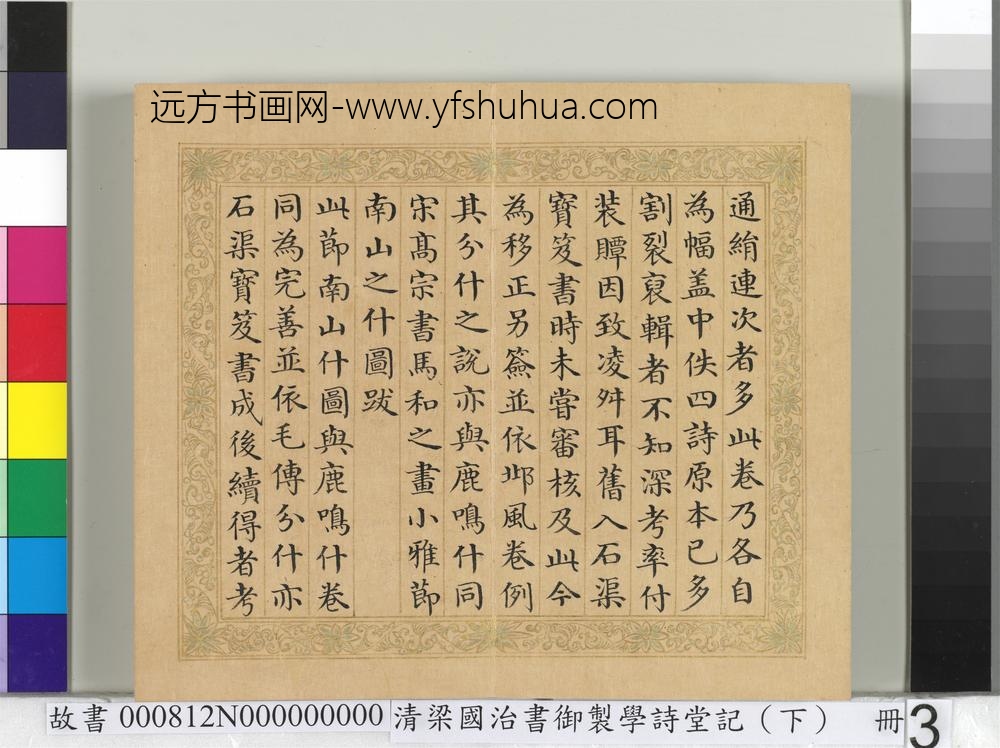 远方书画网-www.yfshuhua.com
通絹連次者多此卷乃各自
為幅盖中佚四詩原本已多
割裂裒輯者不知深考率付
装贉因致凌舛耳舊入石渠
寶笈書時未嘗審核及此今
為移正另簽並依邶風卷例
其分什之說亦與鹿鳴什同
宋髙宗書馬和之畫小雅節
南山之什圖跋
此節南山什圖與鹿鳴什卷
同為完善並依毛傳分什亦
石渠寶笈書成後續得者考
故書 000812N000000000 清梁國治書御製學詩堂記（下） 冊 3